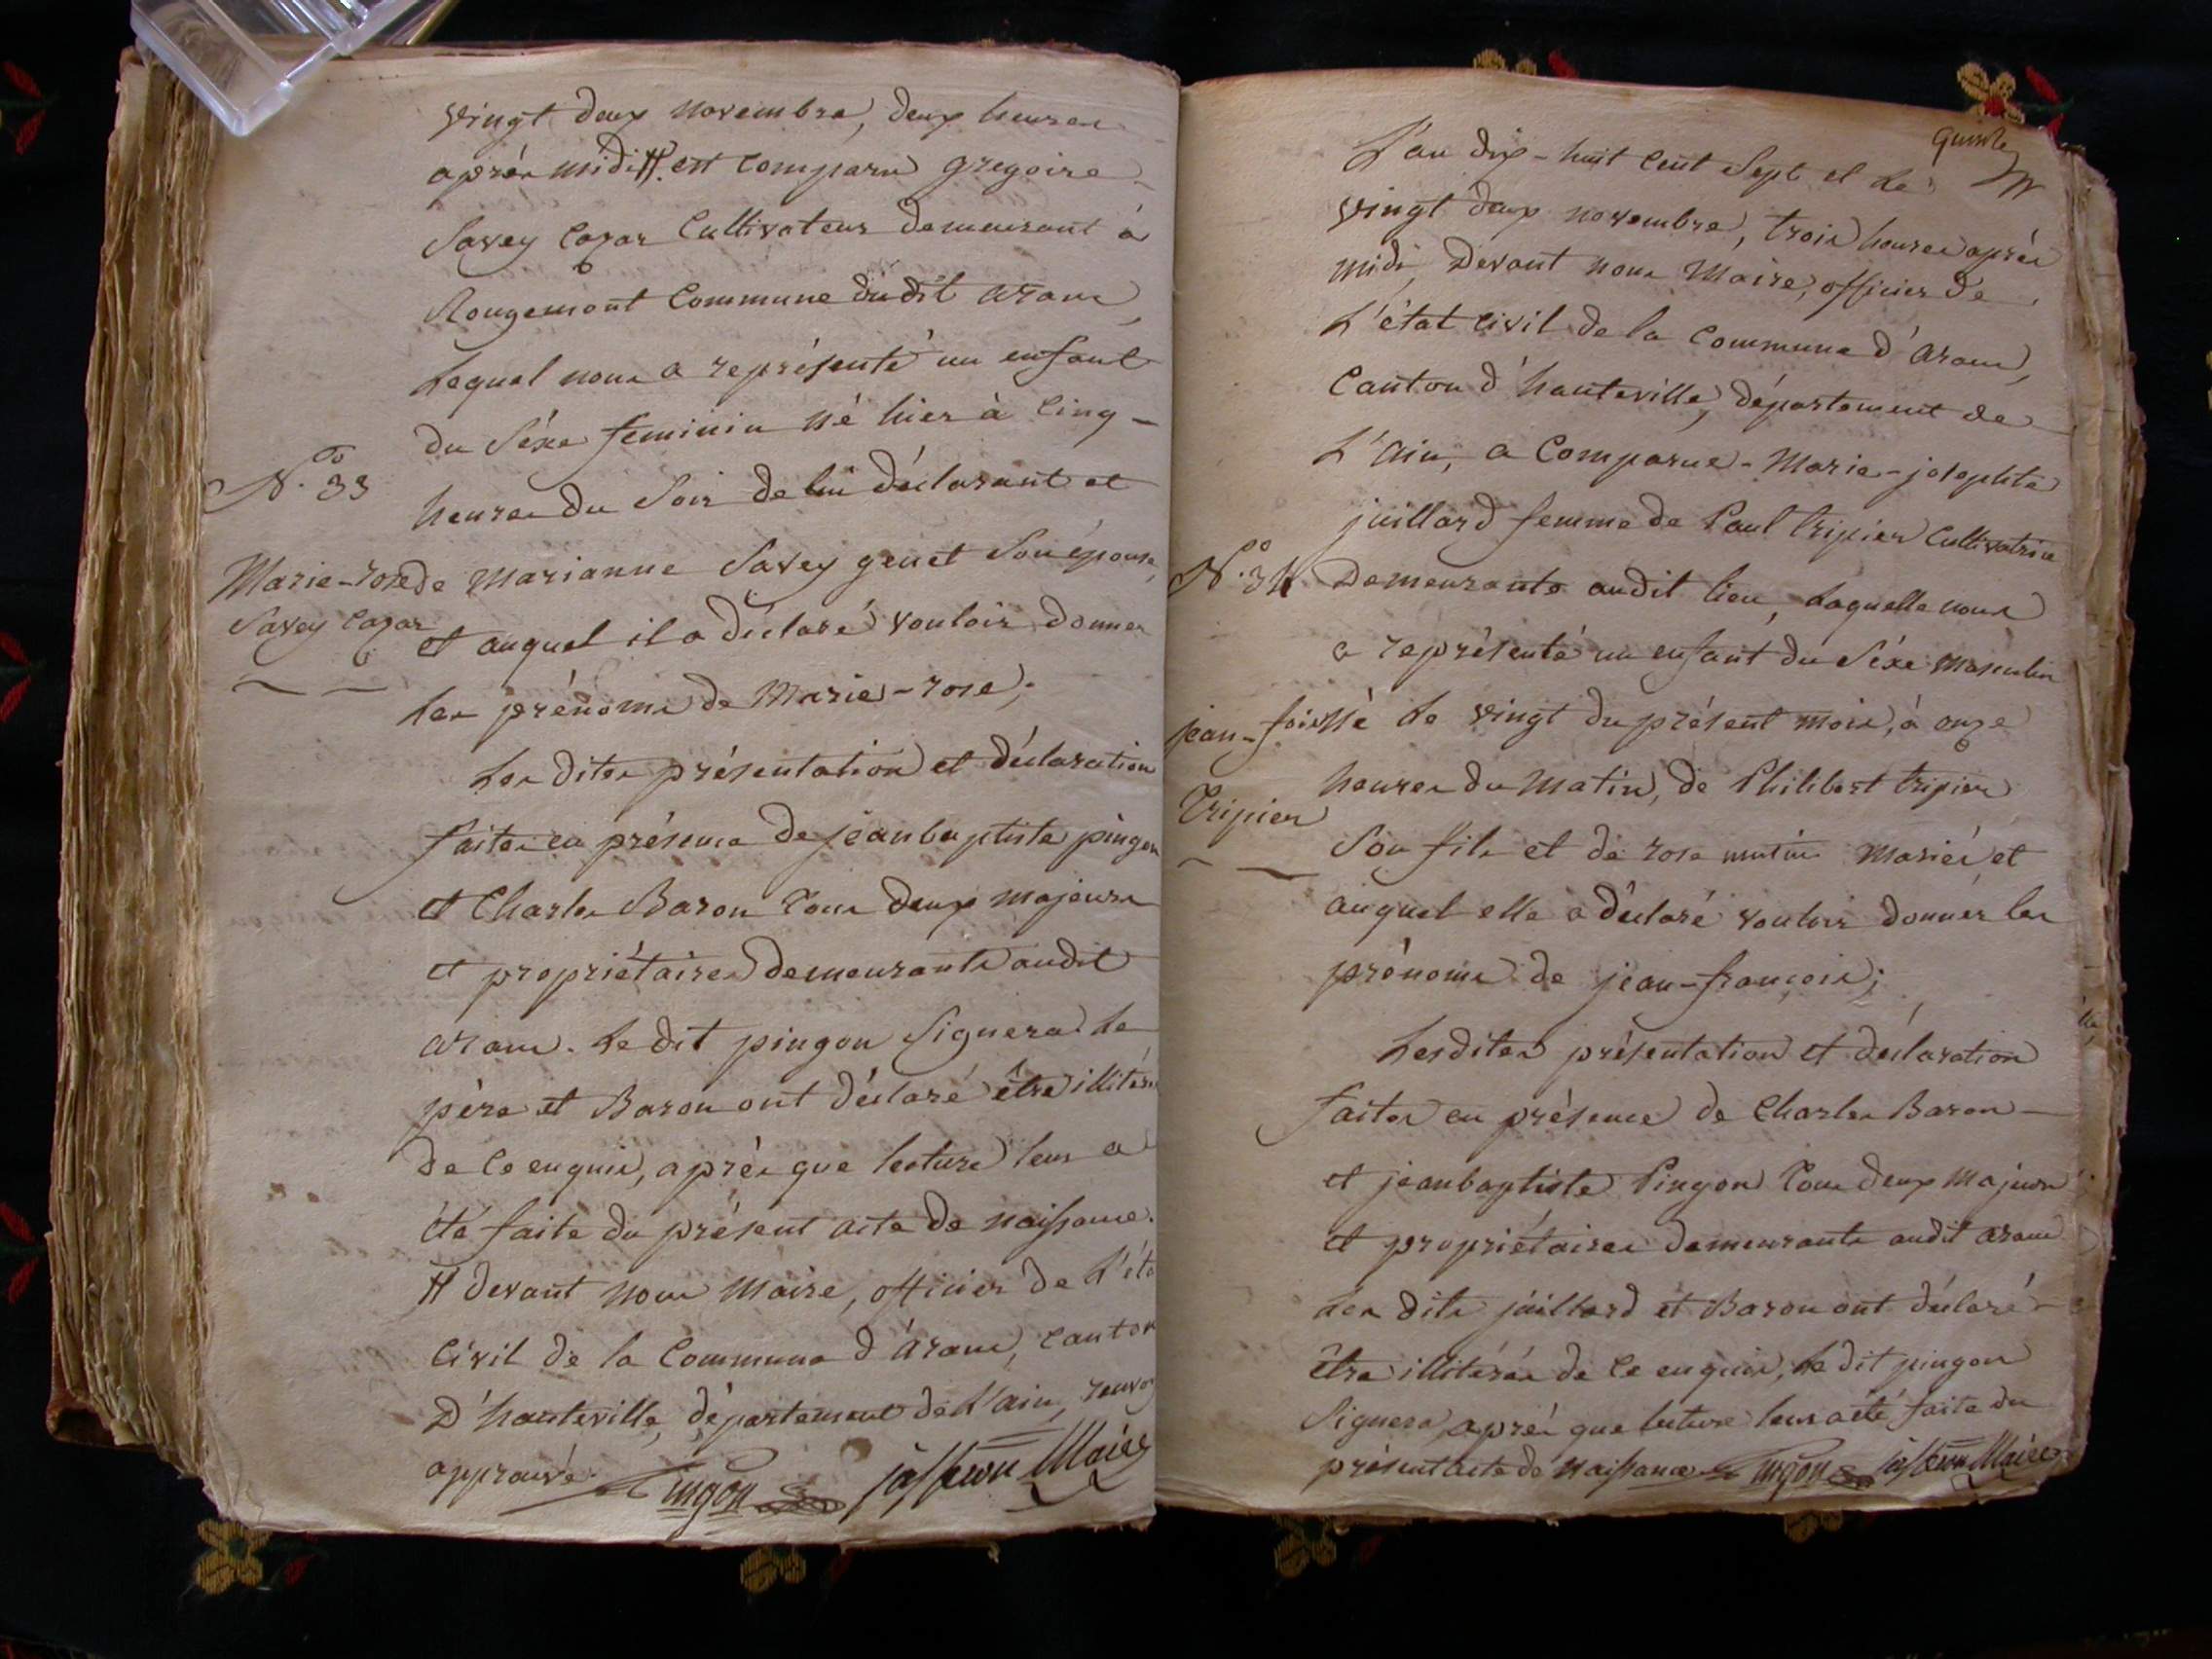 vingt deux novembre, deux heures
après midi # est comparu gregoire
Savey Cazar Cultivateur demeurant à
Rougemont Commune dudit aranc,
Lequel nous a représenté un enfant
du Séxe feminin né hier à Cinq -
N.o 33
heures du Soir de lui déclarant et
Marie-rose
de Marianne Savey genet Son épouse,
Savey Cazar
et auquel il a déclaré vouloir donner
les prénoms de Marie-rose;
Les dites présentation et déclaration
faites en présence de jeanbaptiste pingon
et Charles Baron tous deux majeurs
et propriétaires demeurants audit
aranc. Le dit pingon Signera le
père et Baron ont déclaré être illitéré
de ce enquis, après que lecture leur a
été faite du présent acte de naissance.
# devant nous Maire, officier de L'éta
Civil de la Commune d'Aranc, canton
D'hauteville, département de L'ain, renvoy
approuvé. Pingon Maire
L'an dix-huit Cent Sept et Le
vingt deux novembre, trois heures après
midi, Devant nous Maire, officier De
L'état civil de la Commune d'aranc,
Canton d'hauteville, département de
L'ain, a Comparue - Marie-josephte
juillard femme de Paul tripier Cultivatrice
N.o 34
Demeurante audit lieu, Laquelle nous
a représenté un enfant du Séxe masculin
jean-fois
Né Le vingt du présent mois, à onze
heures du matin, de Philibert tripier
Tripier
Son fils et de rose mariés et
auquel elle a déclaré vouloir donner les
prénoms de jean-françois;
Lesdites présentation et déclaration
faites en présence de Charles Baron -
et jeanbaptiste Pingon tous deux Majeurs
et propriétaires demeurants audit aranc
Les dits juillard et Baron ont déclaré -
être illitérés de ce enquis, Le dit pingon
Signera, après que lecture leur a été faite du
présent acte de naissance Pingon Maire